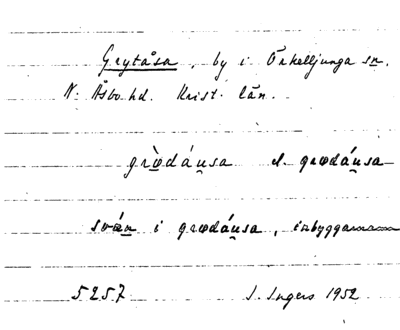 Grytåsa, by i Örkelljunga sn.
N. Åsbo hd. Krist. län.
grœ̀dáu̯sa el. grœdáu̯sa
sván i grœdáu̯sa, inbyggarnamn
5257 I. Ingers 1952